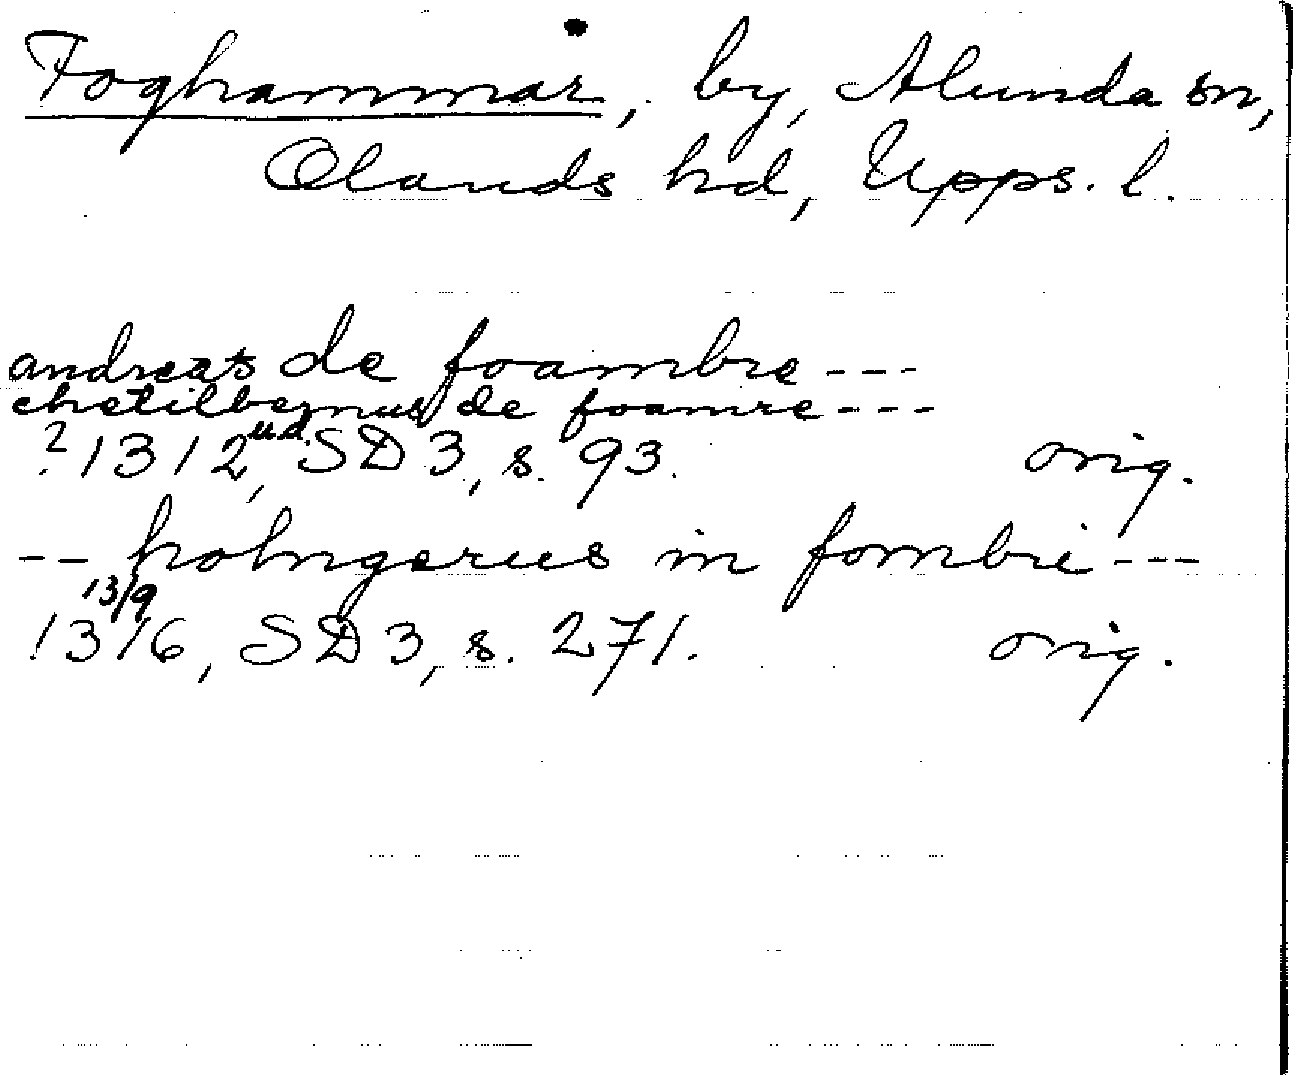 Foghammar, by, Alunda sn,
Olands hd, Upps. l.
andreas de foambre ---
chetilbernus de foamre ---
? 1312, u.d. SD 3, s. 93. orig.
-- holmgerus in fombri ---
13/9
1316, SD 3, s. 271. orig.